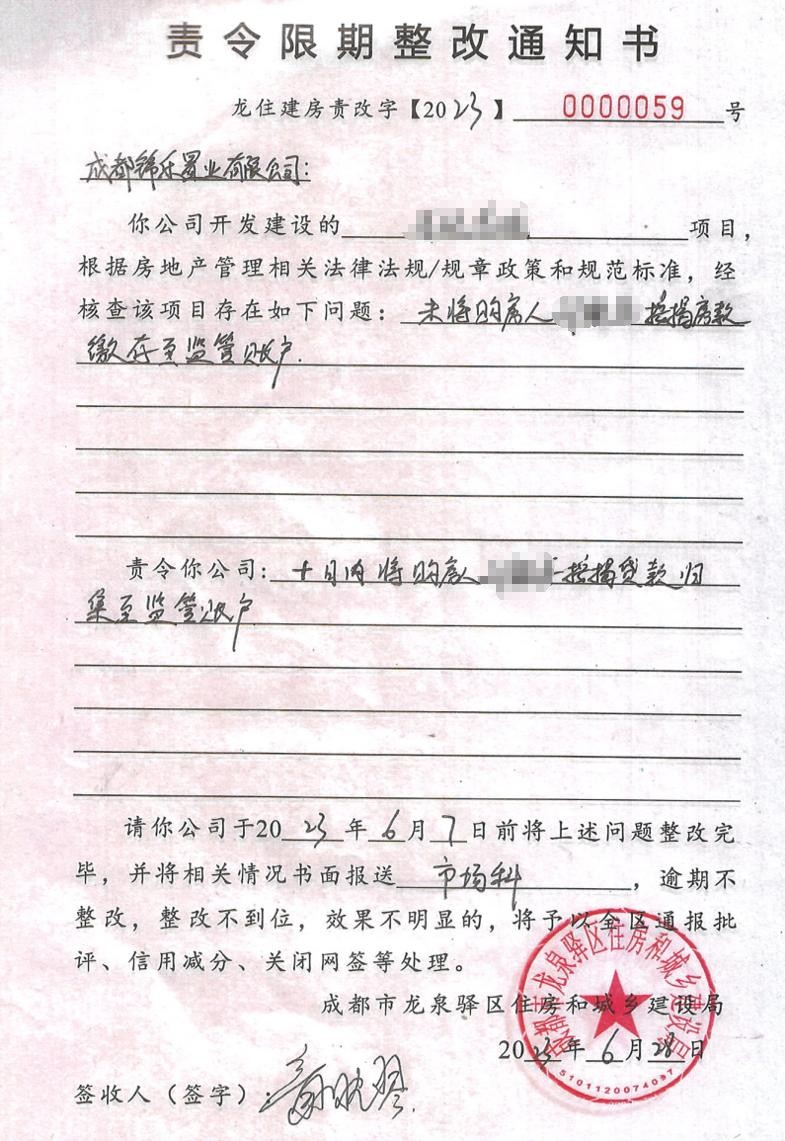 责令限期整改通知书
龙住建房责改字【2023】 0000059 号
成都锦乐置业有限公司:
你公司开发建设的 项目,
根据房地产管理相关法律法规/规章政策和规范标准,经
核查该项目存在如下问题: 未将购房人 按揭房款
缴存至监管账户.
责令你公司: 十日内将购房人 按揭贷款归
集至监管账户
请你公司于2023年6月7日前将上述问题整改完
毕,并将相关情况书面报送 市场科 ,逾期不
整改,整改不到位,效果不明显的,将予以全区通报批
评、信用减分、关闭网签等处理。
成都市龙泉驿区住房和城乡建设局
2023年6月28日
签收人(签字):
成都市龙泉驿区住房和城乡建设局
5101120074097